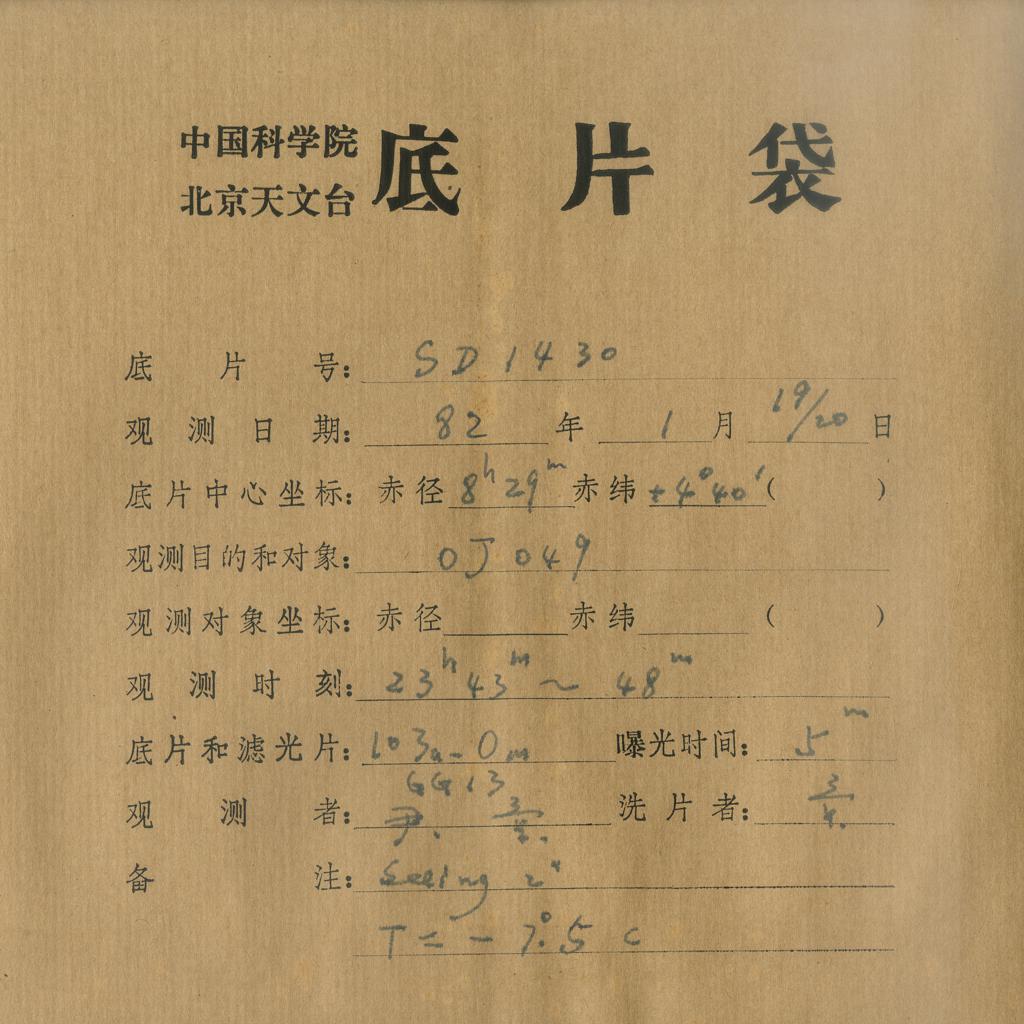 中国科学院
北京天文台
底片袋
底片号: SD1430
观测日期: 82年 1月 19/20日
底片中心坐标: 赤径 8h29m 赤纬 +4°40′ ( )
观测目的和对象: OJ 049
观测对象坐标: 赤径 赤纬 ( )
观测时刻: 23h43m ~ 48m
底片和滤光片: 103a-O 曝光时间: 5m
GG13
观测者: 尹. 洗片者:
备注: Seeing 2"
T = -7°.5 C